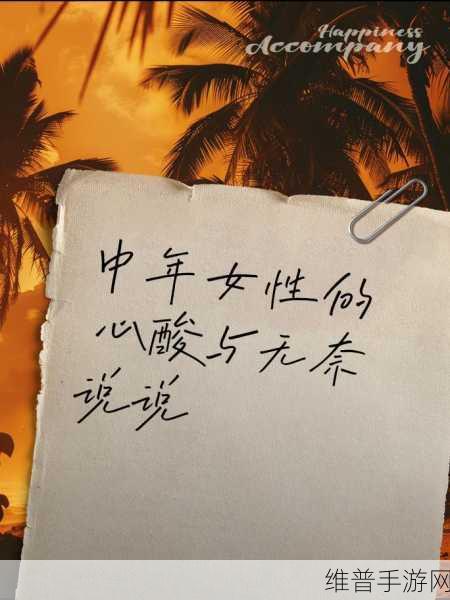 Happiness
Accompany
中年女性的
心酸与无奈
说说
维普手游网